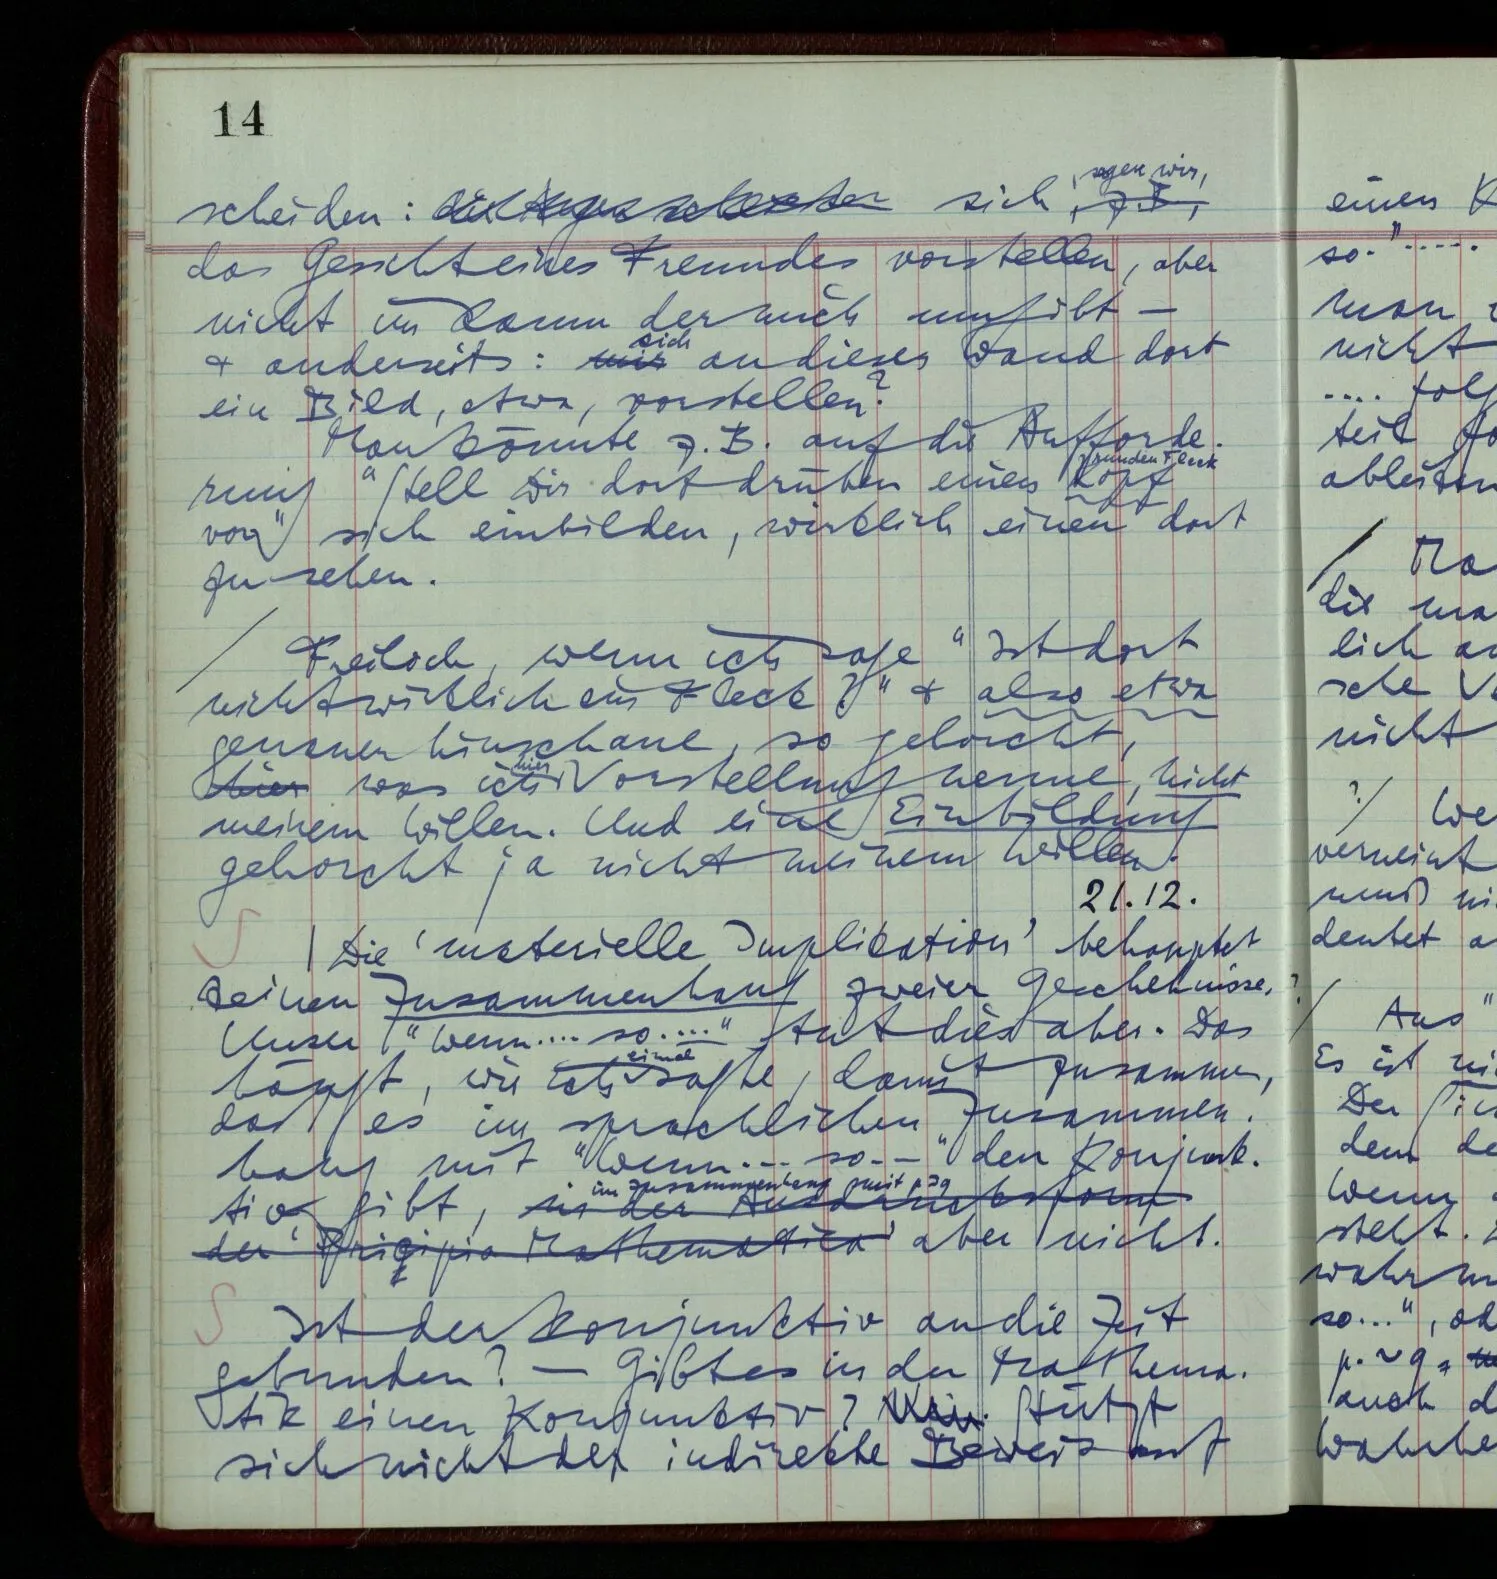 14
scheiden: sich, sagen wir,
, z.B.,
das Gesicht eines Freundes vorstellen, aber
nicht im Raum der mich umgibt –
& anderseits: mir sich an dieser Wand dort
ein Bild, etwa, vorstellen?
Man könnte z.B. auf die Aufforde-
rung "Stell Dir dort drüben einen Kopf runden Fleck
vor" sich einbilden, wirklich einen dort
zu sehen.
/ Freilich, wenn ich sage "Ist dort
nicht wirklich ein Fleck?" & also etwa
genauer hinschaue, so gehorcht,
hier was ich hier Vorstellung nenne, nicht
meinem Willen. Und eine Einbildung
gehorcht ja nicht meinem Willen.
21.12.
S
| Die 'materielle Implication' behauptet
keinen Zusammenhang zweier Geschehnisse.
Unser "wenn.... so...." tut dies aber. Das
hängt, wie ich einmal sagte, damit zusammen,
daß es im sprachlichen Zusammen-
hang mit "wenn... so..." den Konjunk-
tiv gibt, in der Ausdrucksform im Zusammenhang mit p⊃q
der 'Principia Mathematica' aber nicht.
S
Ist der Konjunktiv an die Zeit
gebunden? – Gibt es in der Mathema-
tik einen Konjunktiv? Nein. Stützt
sich nicht der indirekte Beweis auf
einen K
so.".....
man
nicht
.... folg
teil
ableiten
/ Ma
die ma
lich an
sche V
nicht
?/ We
verneint
muß ni
deutet a
?
/ Aus "
Es ist ni
Der Sin
dem de
Wenn
steht.
wahr
so...", od
p.~q
auch d
Wahrhe